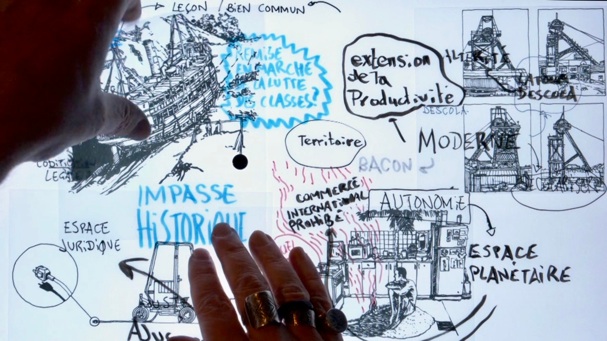 LEÇON / BIEN COMMUN
REMISE
EN MARCHE
DE LA LUTTE
DES CLASSES?
extension
de la
Productivité
ALTÉRITÉ
LATOUR
DESCOLA
DESCOLA
MODERNE
Territoire
BACON
IMPASSE
HISTORIQUE
COMMERCE
INTERNATIONAL
PROHIBÉ
AUTONOMIE
ESPACE
JURIDIQUE
ESPACE
PLANÉTAIRE